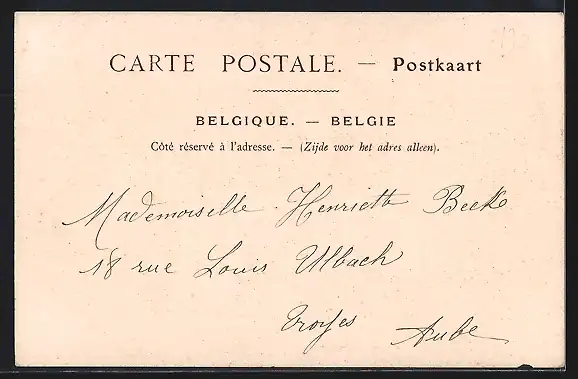 CARTE POSTALE. — Postkaart
BELGIQUE. — BELGIE
Côté réservé à l'adresse. — (Zijde voor het adres alleen).
Mademoiselle Henriette Beeke
18 rue Louis Ulbach
Troyes Aube